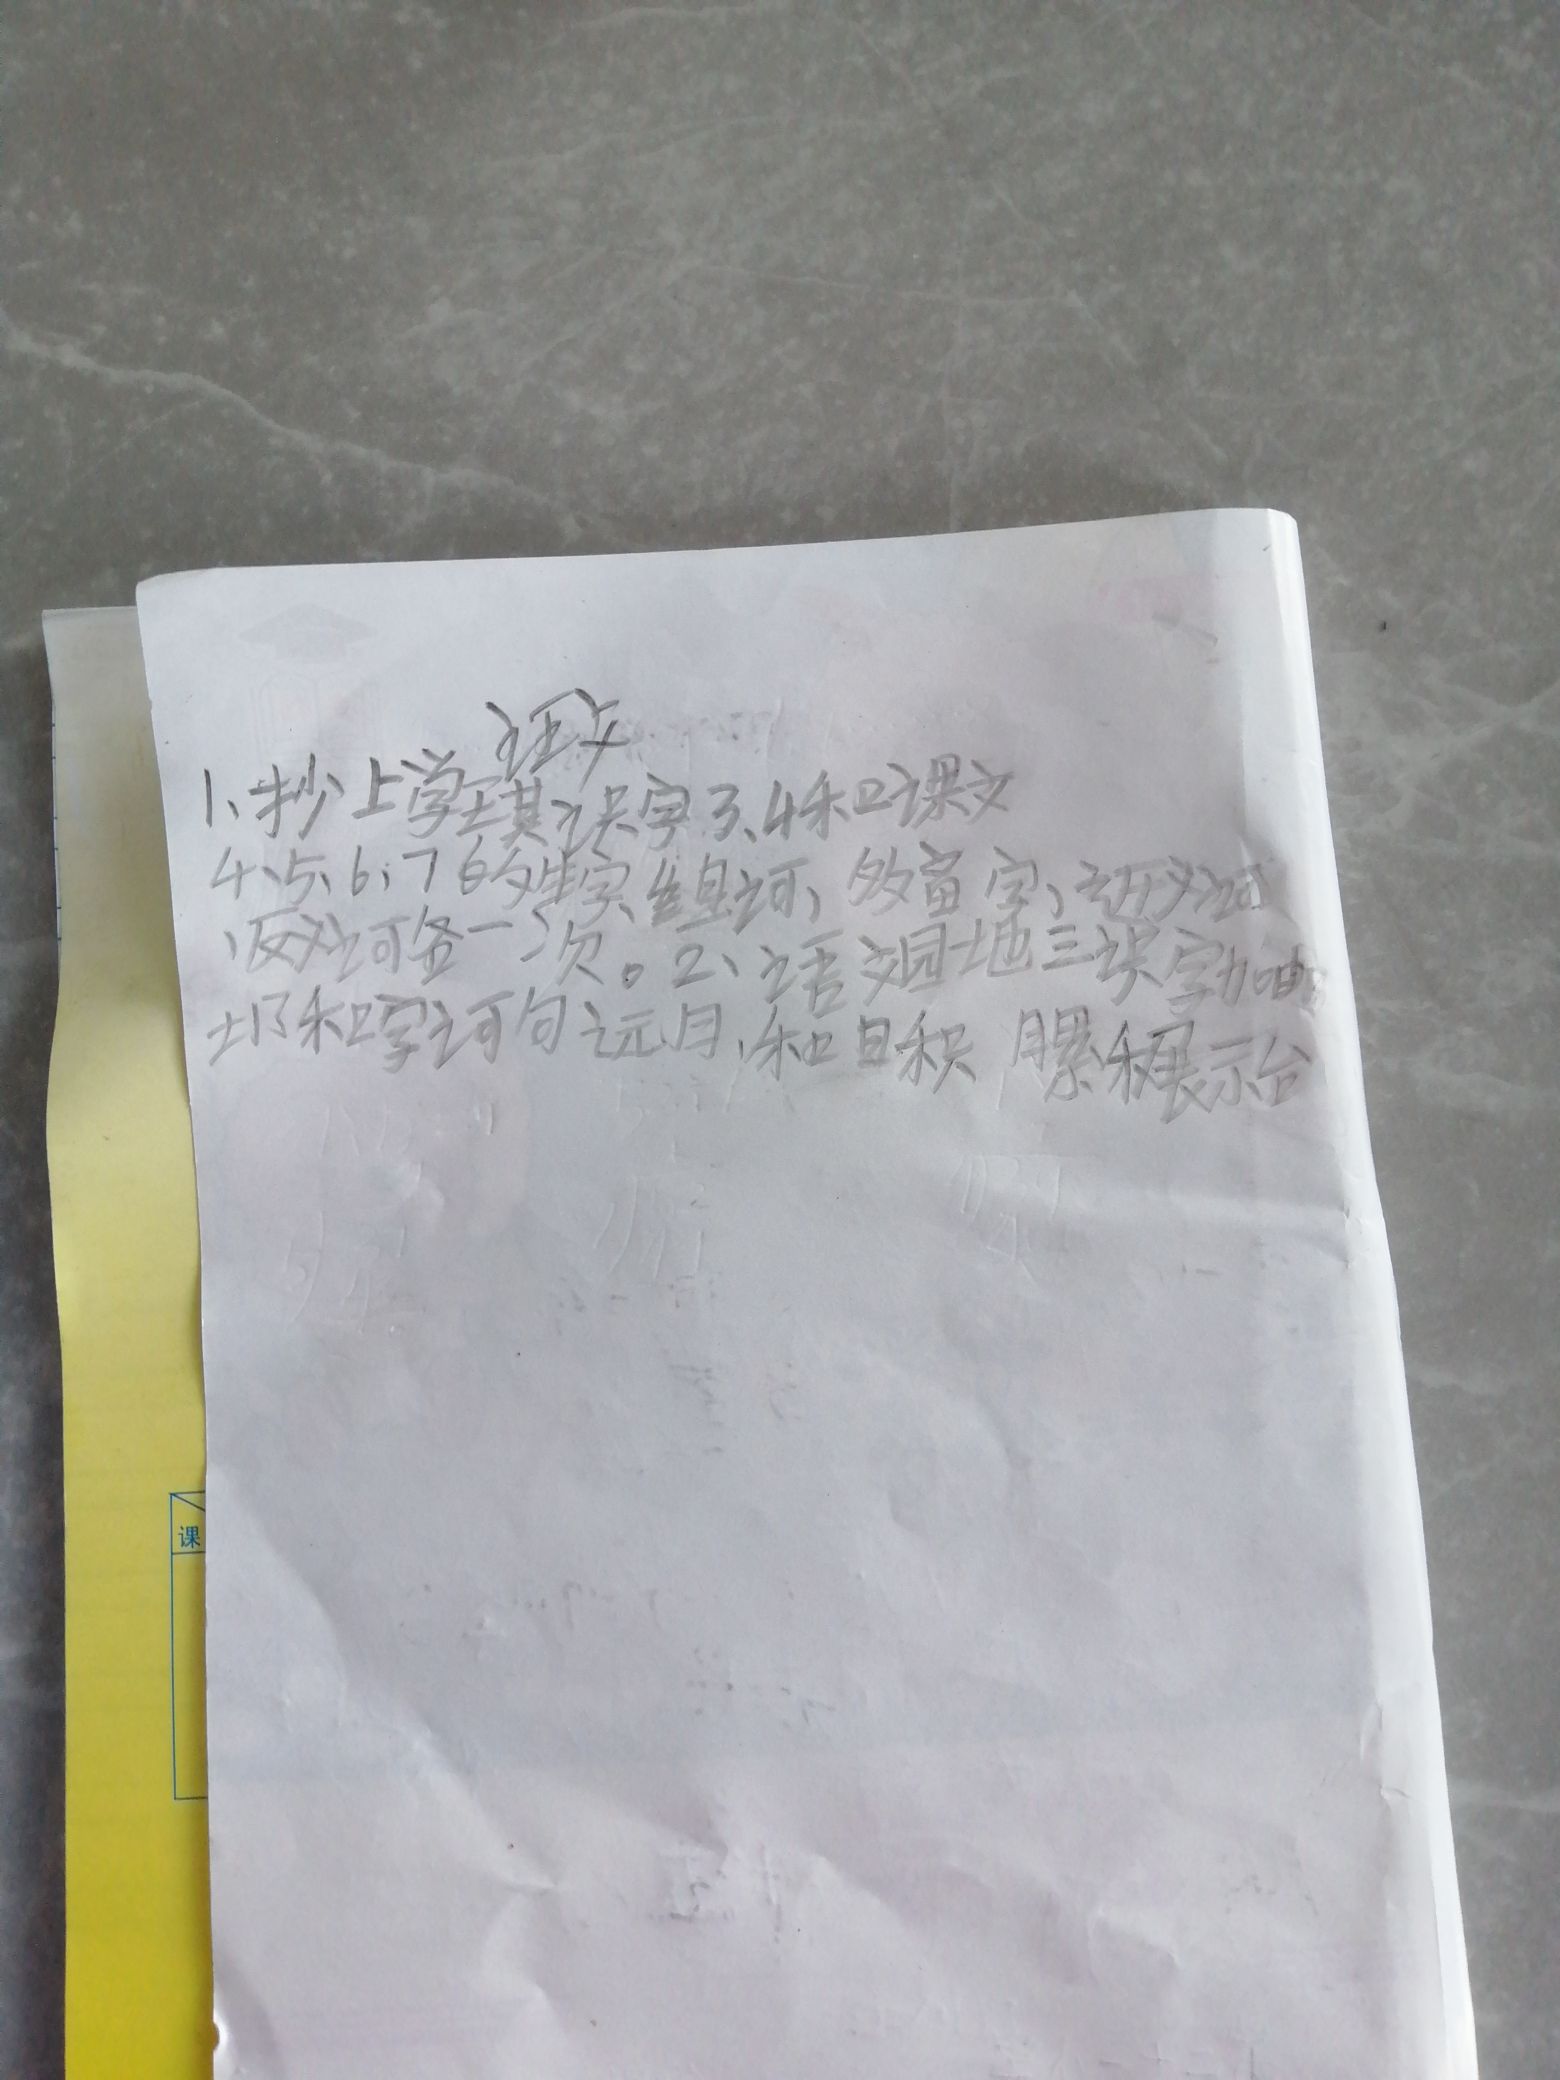 语文
1、抄上学期识字3、4和课文
4、5、6、7的生字、组词、多音字、近义词
、反义词各一次。2、语文园地三识字加油
站和字词句运用、和日积月累和展示台
课